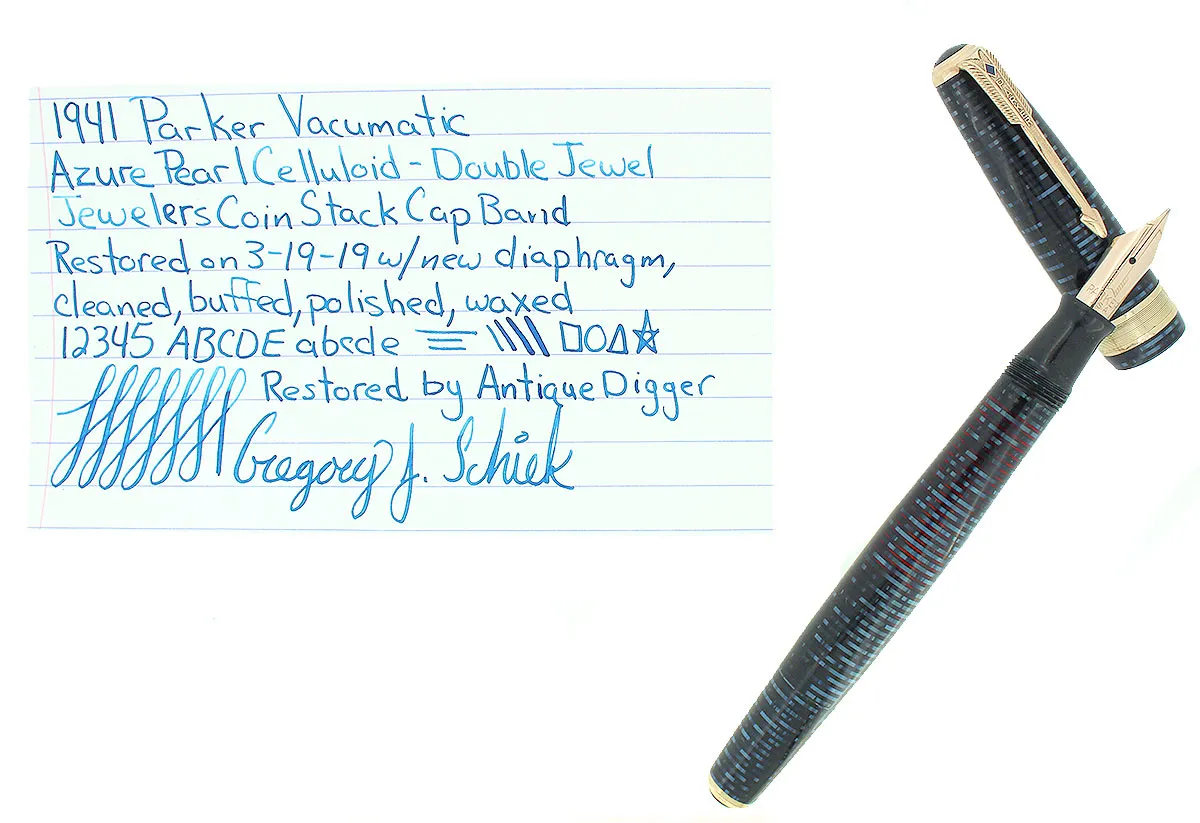 1941 Parker Vacumatic
Azure Pearl Celluloid - Double Jewel
Jewelers Coin Stack Cap Band
Restored on 3-19-19 w/new diaphragm,
cleaned, buffed, polished, waxed
12345 ABCDE abcde
Restored by Antique Digger
Gregory J. Schiek